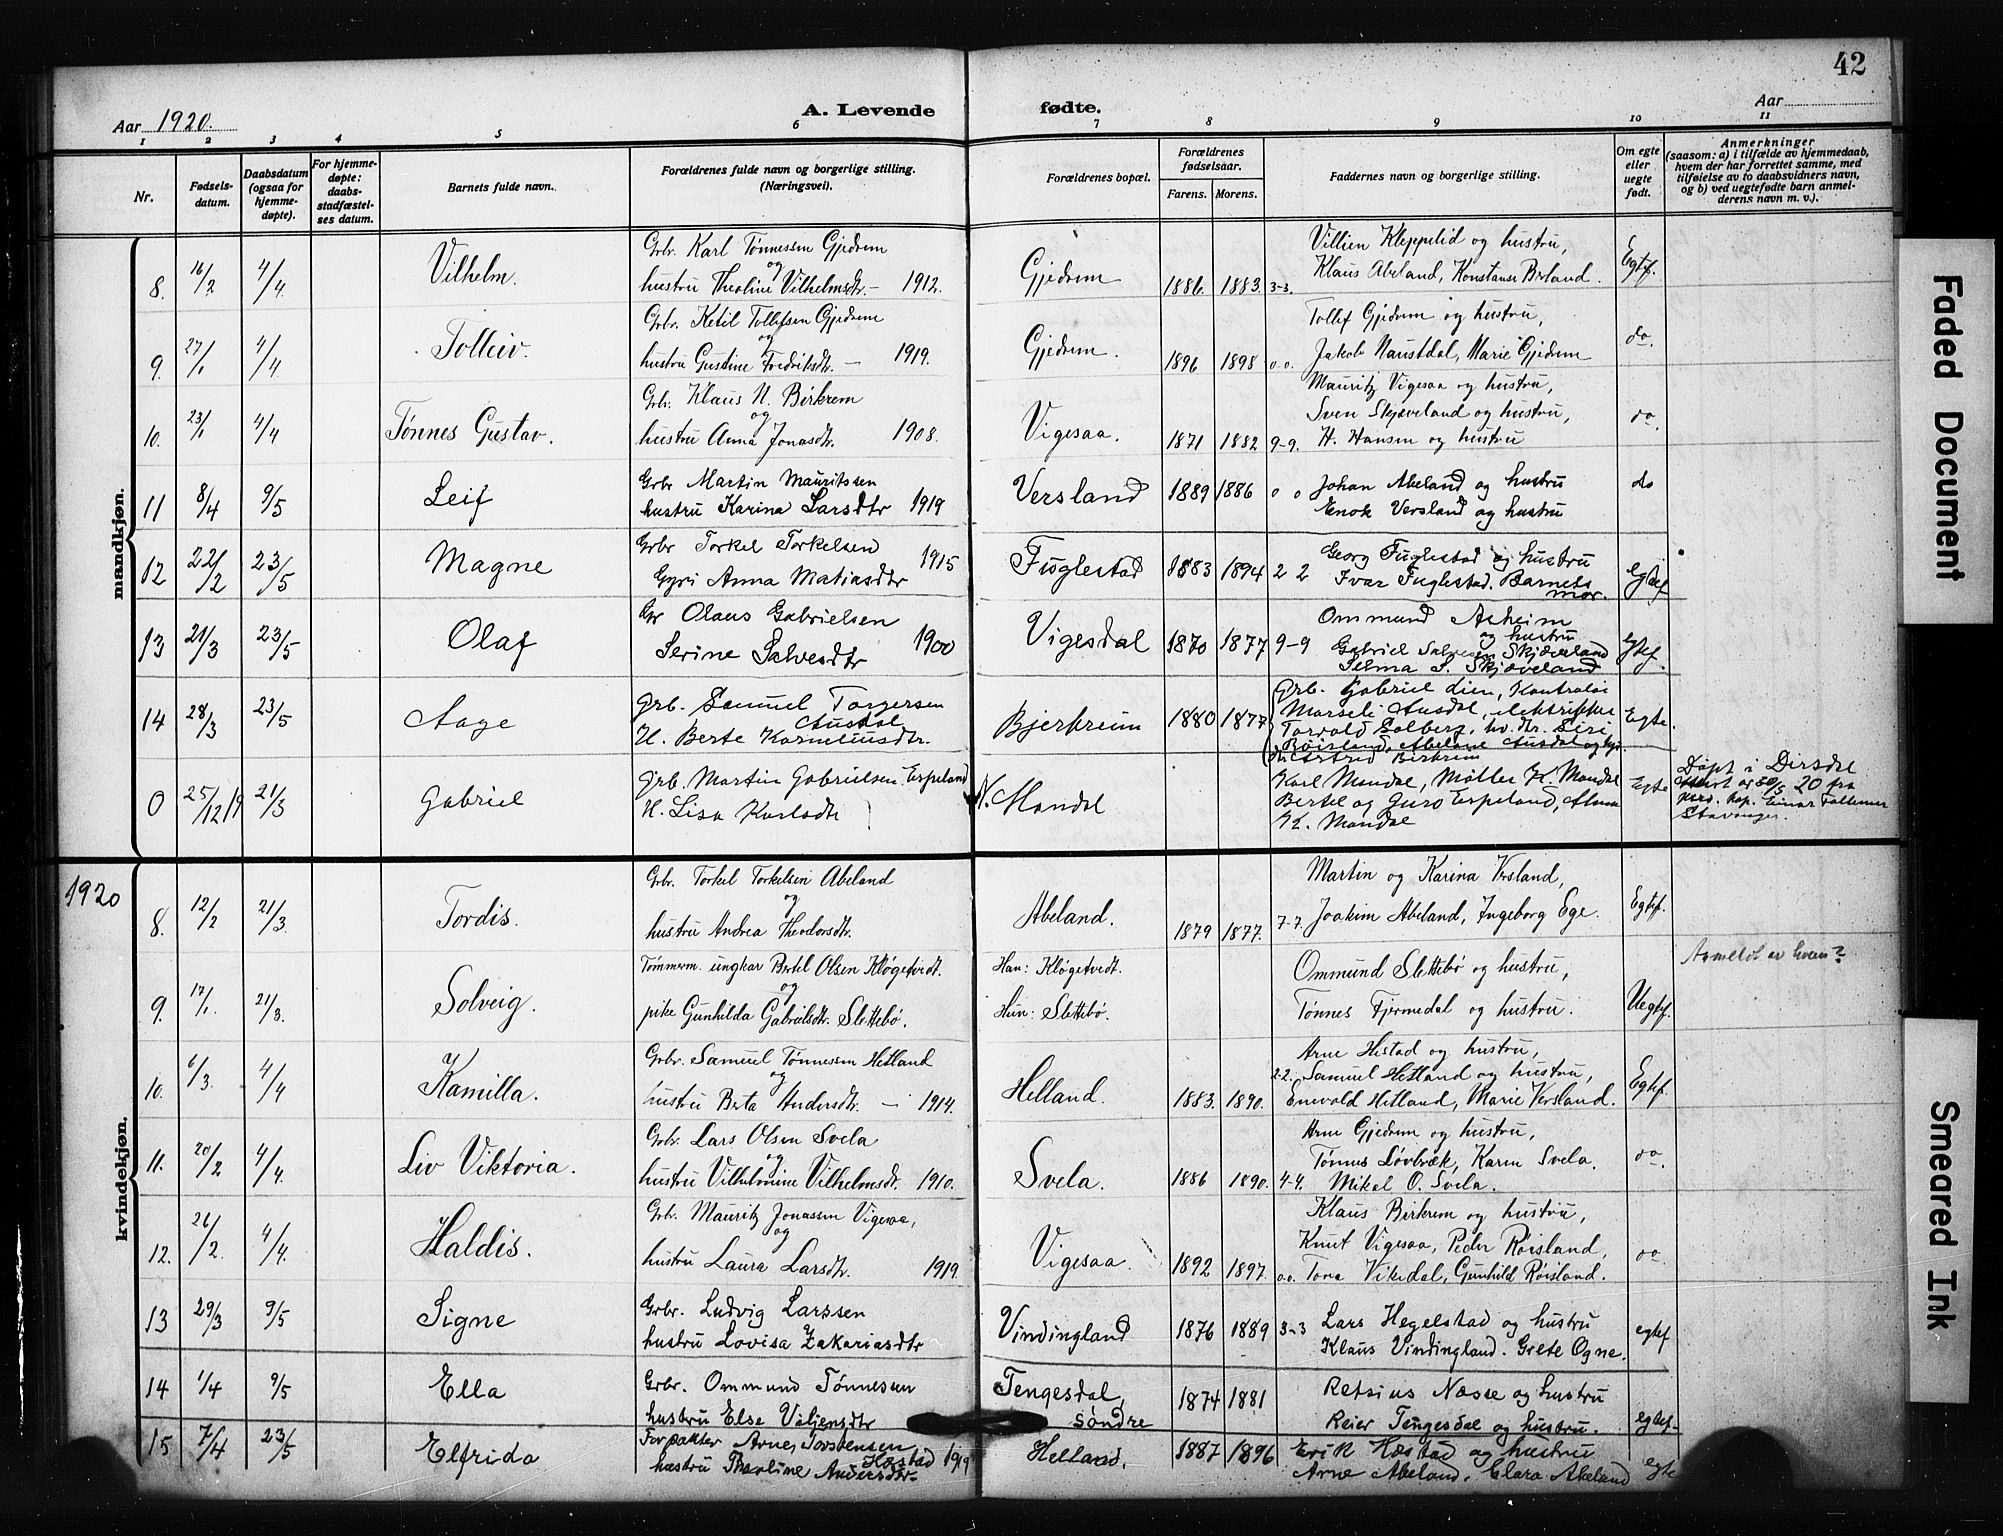 42
Aar 1920. A. Levende fødte. Aar
1 2 3 4 5 6 7 8 9 10 11
Nr.
Fødsels-
datum.
Daabsdatum
(ogsaa for
hjemme-
døpte).
For hjemme-
døpte:
daabs-
stadfæstel-
ses datum.
Barnets fulde navn.
Forældrenes fulde navn og borgerlige stilling.
(Næringsvei).
Forældrenes bopæl.
Forældrenes
fødselsaar.
Farens. Morens.
Faddernes navn og borgerlige stilling.
Om egte
eller
uegte
født.
Anmerkninger
(saasom: a) i tilfælde av hjemmedaab,
hvem der har forrettet samme, med
tilføielse av to daabsvidners navn,
og b) ved uegtefødte barn anmel-
derens navn m. v.).
mandkjøn.
8. 16/2 4/4 Vilhelm.
Grbr. Karl Tønnessen Gjedrem
og
hustru Theoline Vilhelmsdtr. – 1912.
Gjedrem 1886. 1883. 3-3.
Villien Kleppelid og hustru,
Klaus Abeland, Konstanse Berland.
Egtef.
9. 27/1 4/4 Tolleiv.
Grbr. Ketil Tollefsen Gjedrem
og
hustru Gustine Fredriksdtr. – 1919.
Gjedrem. 1896 1898 0-0.
Tollef Gjedrem og hustru,
Jakob Naustdal, Marie Gjedrem
do.
10. 23/1 4/4 Tønnes Gustav.
Grbr. Klaus N. Birkrem
og
hustru Anna Jonasdtr. 1908.
Vigesaa. 1871 1882 9-9.
Mauritz Vigesaa og hustru,
Sven Skjæveland og hustru,
H. Hansen og hustru
do.
11 8/4 9/5 Leif
Grbr Martin Mauritssen
hustru Karina Larsdtr 1919
Versland 1889 1886 0 0
Johan Abeland og hustru
Enok Versland og hustru
do
12 22/2 23/5 Magne
Grbr Torkel Torkelsen 1915
Gyri Anna Matiasdtr
Fuglestad 1883 1894 2 2
Georg Fuglestad og hustru
Ivar Fuglestad. Barnets
mor.
egtef
13 21/3 23/5 Olaf
Gr Olaus Gabrielsen 1900
Serine Salvesdtr
Vigesdal 1870 1877 9-9
Ommund Asheim
og hustru
Gabriel Salvesen Skjæveland
Selma S. Skjæveland
egtef.
14 28/3 23/5 Aage
Grb. Samuel Torgersen
Ausdal
H. Berte Korneliusdtr.
Bjerkreim 1880 1877
Grb. Gabriel Lien, Kontrolør
Marseli Ausdal, elektriker
Torvald Solberg, hv. dtr. Siri
Røisland, Abelone Ausdal og
Astrid Birkrem
Egte.
0 25/12 19 21/3 Gabriel
Grb. Martin Gabrielsen Espeland
H. Lisa Karlsdtr
N. Mandal
Karl Mandal, Møller K. Mandal
Bertel og Guro Espeland, Alma
K. Mandal
Egte
Døpt i Dirsdal
20 fra
Einar
Stavanger.
1920
kvindekjøn.
8. 12/2 21/3. Tordis.
Grbr. Torkel Torkelsen Abeland
og
hustru Andrea Theodorsdtr.
Abeland. 1879 1877. 7-7.
Martin og Karina Versland,
Joakim Abeland, Ingeborg Ege.
Egtef.
9. 17/1. 21/3. Solveig.
Tømmerm. ungkar Bertel Olsen Kløgetvedt.
og
pike Gunhilda Gabrielsdtr. Slettebø.
Han: Kløgetvedt.
Hun: Slettebø.
Ommund Slettebø og hustru,
Tønnes Fjermedal og hustru.
Uegtef.
Anmeldt av hvem?
10. 6/3. 4/4 Kamilla.
Grbr. Samuel Tønnessen Hetland
og
hustru Berta Andersdtr. – 1914.
Helland. 1883. 1890. 2-2.
Arne Hestad og hustru,
Samuel Hetland og hustru,
Enevold Hetland, Marie Versland.
Egtef.
11. 20/2 4/4. Liv Viktoria.
Grbr. Lars Olsen Svela
og
hustru Vilhelmine Vilhelmsdt. 1910.
Svela. 1886 1890. 4-4.
Arne Gjedrem og hustru,
Tønnes Løvbræk, Karen Svela.
Mikal O. Svela.
do.
12. 26/2. 4/4. Haldis.
Grbr. Mauritz Jonassen Vigesaa,
og
hustru Laura Larsdtr. 1919.
Vigesaa. 1892 1897. 0.0.
Klaus Birkrem og hustru,
Knut Vigesaa, Peder Røisland,
Tona Vikedal, Gunhild Røisland.
do
13 29/3 9/5 Signe
Grbr. Ludvig Larssen
hustru Lovisa Zakariasdtr
Vindingland 1876 1889 3-3
Lars Hegelstad og hustru
Klaus Vindingland. Grete Ogne.
egtef
14 1/4 9/5 Ella
Grbr. Ommund Tønnessen
hustru Else Viljensdtr
Tengesdal,
søndre
1874 1881
Retsius Næsse og hustru
Reier Tengesdal og hustru.
egtef.
15 7/4 23/5 Elfrida
Forpakter Arne Torstensen
Hæstad 1919
hustru Theoline Andersdtr.
Helland. 1887 1896
Erik Hæstad og hustru
Arne Abeland, Clara Abeland
egte
Faded Document
Smeared Ink